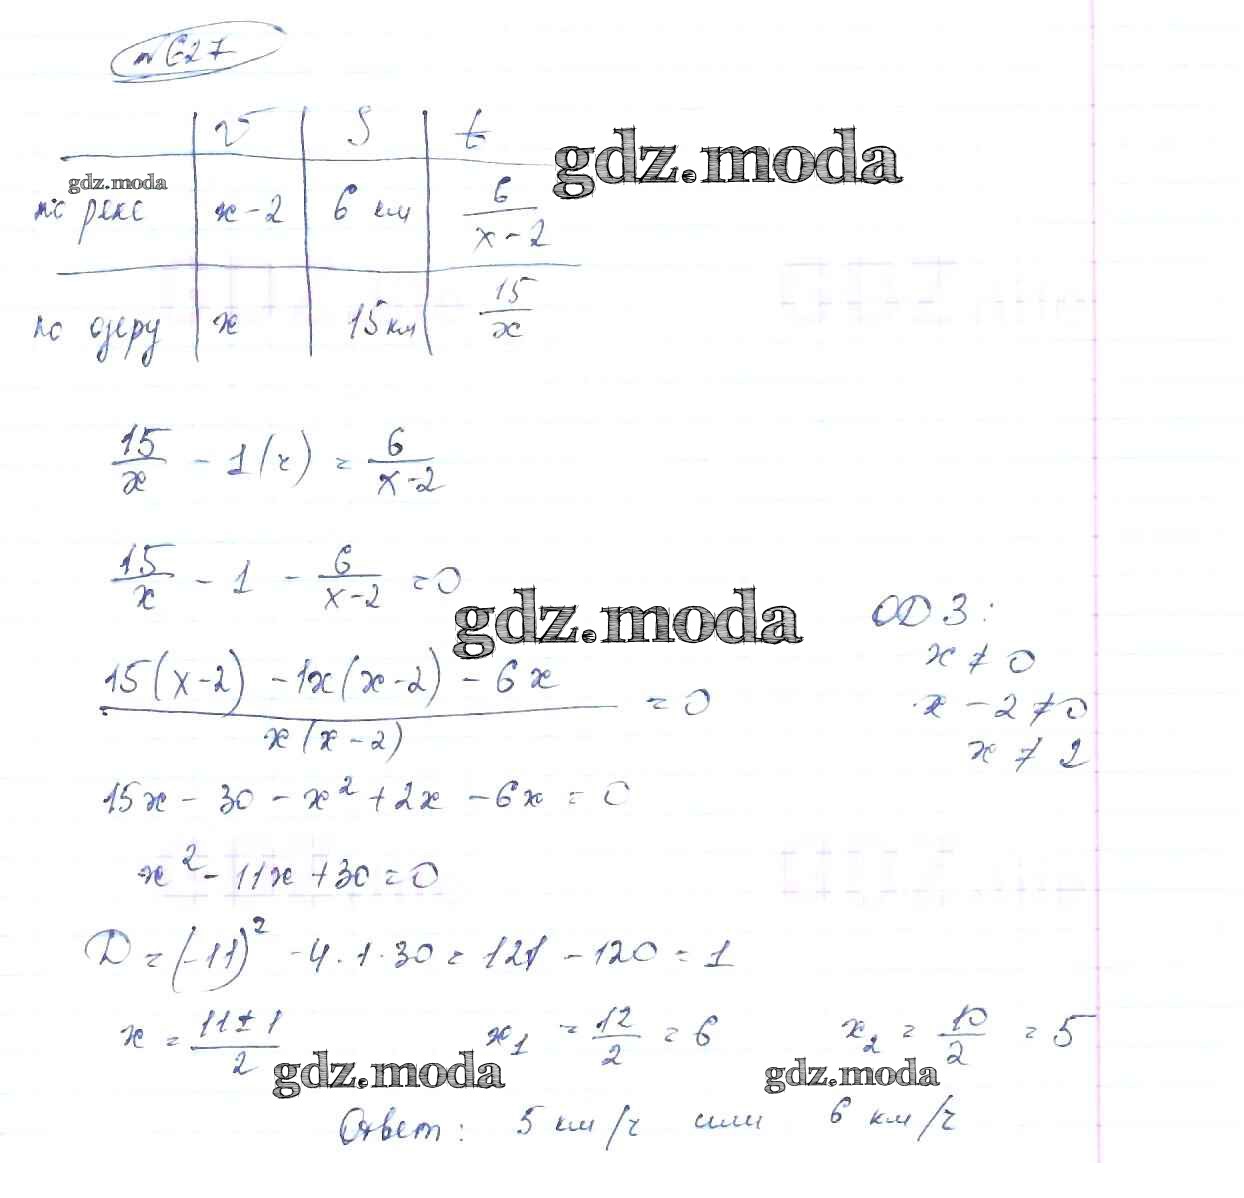 № 627
v S t
gdz.moda
gdz.moda
по реке x-2 6 км 6/(x-2)
по озеру x 15 км 15/x
15/x - 1(ч) = 6/(x-2)
15/x - 1 - 6/(x-2) = 0
gdz.moda
ОДЗ:
x ≠ 0
x - 2 ≠ 0
x ≠ 2
(15(x-2) - 1x(x-2) - 6x)/(x(x-2)) = 0
15x - 30 - x² + 2x - 6x = 0
x² - 11x + 30 = 0
D = (-11)² - 4·1·30 = 121 - 120 = 1
x = (11±1)/2 x₁ = 12/2 = 6 x₂ = 10/2 = 5
gdz.moda
gdz.moda
Ответ: 5 км/ч или 6 км/ч